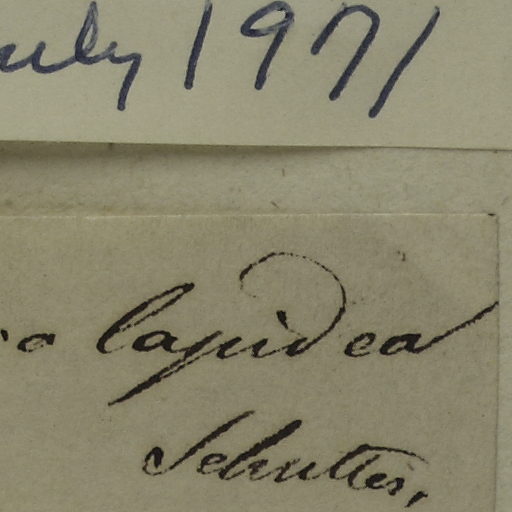 July 1971
lapidea
Schultes,